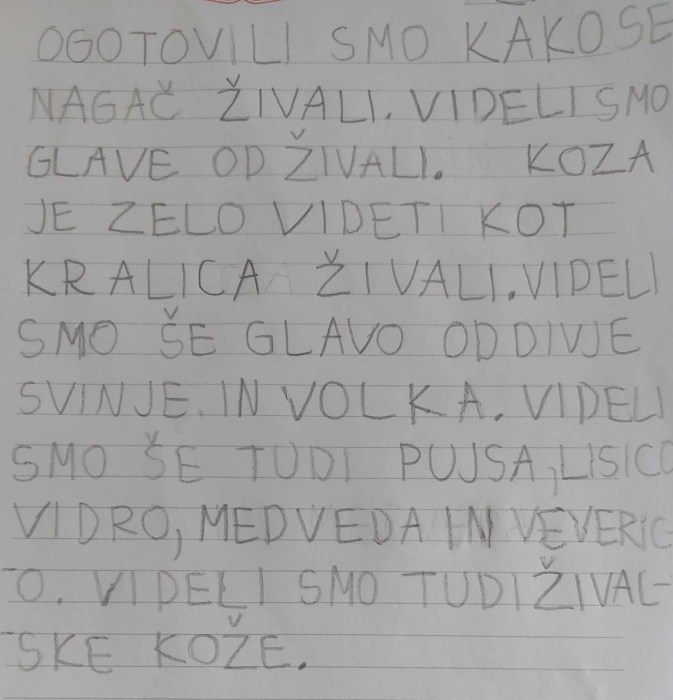 OGOTOVILI SMO KAKO SE
NAGAČ ŽIVALI. VIDELI SMO
GLAVE OD ŽIVALI. KOZA
JE ZELO VIDETI KOT
KRALICA ŽIVALI. VIDELI
SMO ŠE GLAVO OD DIVJE
SVINJE IN VOLKA. VIDELI
SMO ŠE TUDI PUJSA, LISICO
VIDRO, MEDVEDA IN VEVERIC-
-O. VIDELI SMO TUDI ŽIVAL-
-SKE KOŽE.